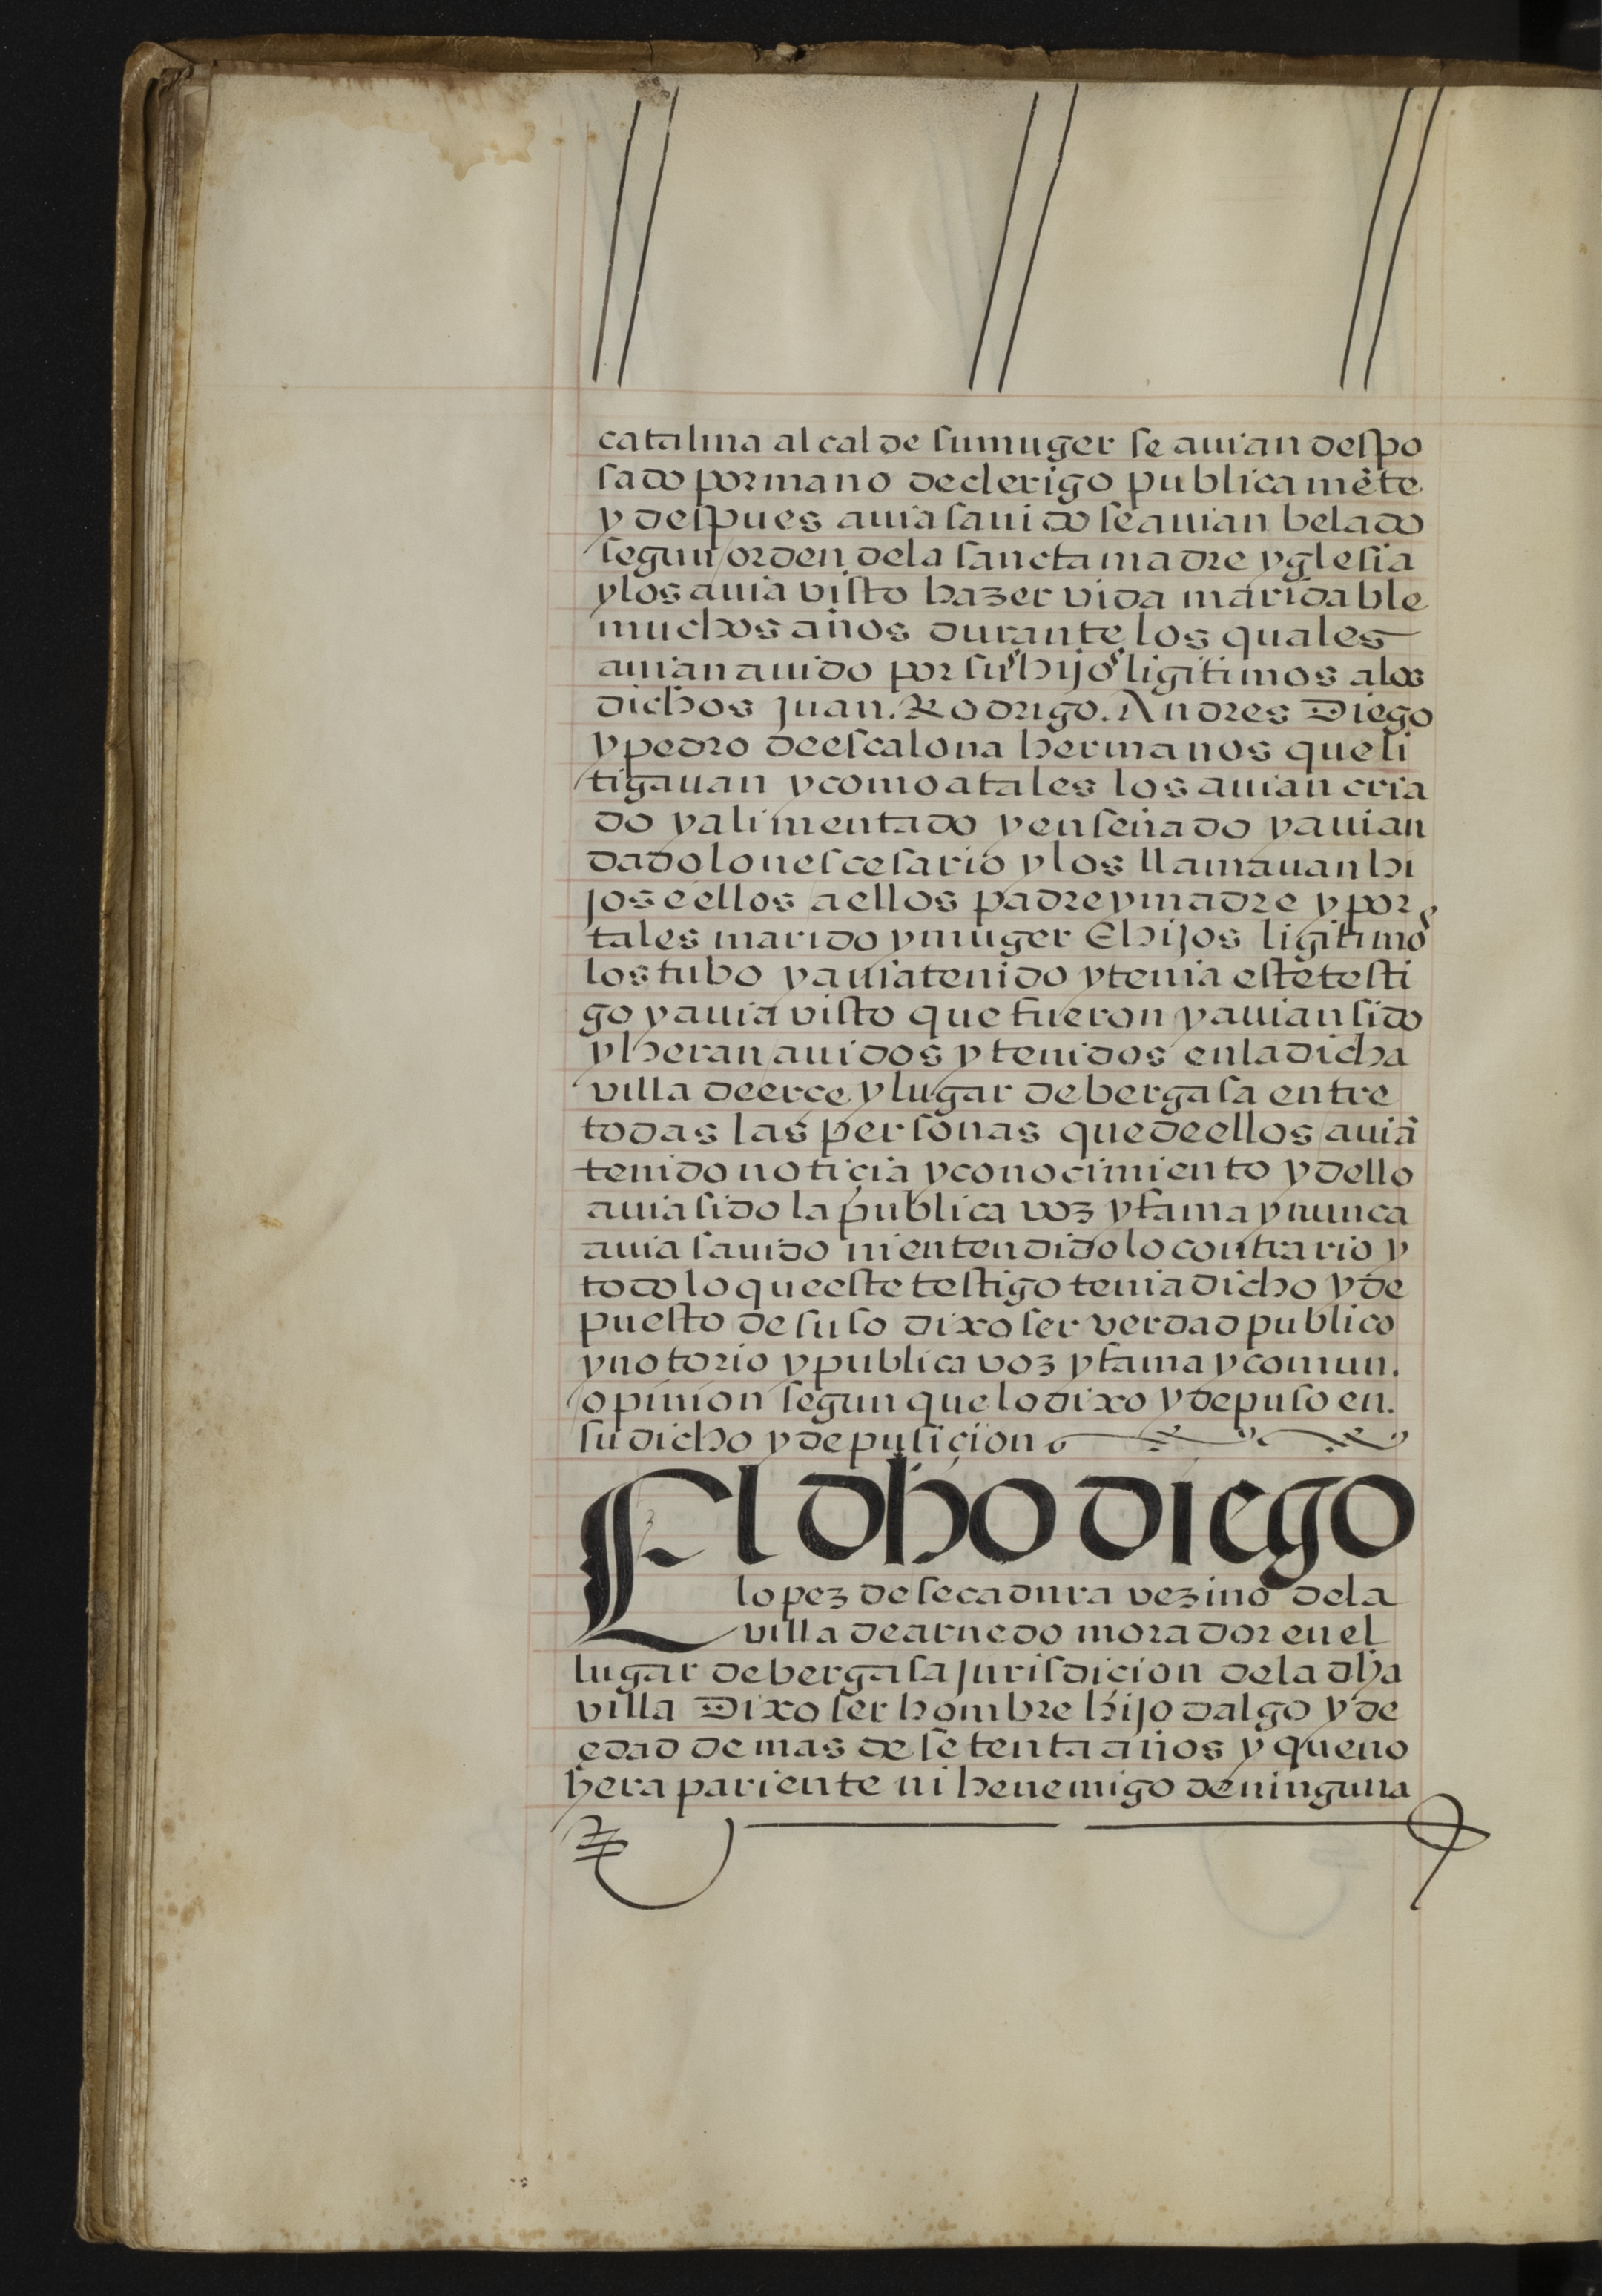 catalina alcalde su muger se auian despo
sado por mano de clerigo publicamẽte
y despues auia sauido se auian belado
segun orden de la sancta madre yglesia
y los auia visto hazer vida maridable
muchos años durante los quales
auian auido por sus hijos ligitimos a los
dichos juan. Rodrigo. Andres Diego
y pedro de escalona hermanos que li
tigauan y como a tales los auian cria
do y alimentado y enseñado y auian
dado lo nescesario y los llamauan hi
jos e ellos a ellos padre y madre y por
tales marido y muger E hijos ligitimos
los tubo y auia tenido y tenia este testi
go y auia visto que fueron y auian sido
y heran auidos y tenidos en la dicha
villa de erce y lugar de bergasa entre
todas las personas que de ellos auiã
tenido noticia y conocimiento y dello
auia sido la publica voz y fama y nunca
auia sauido ni entendido lo contrario y
todo lo que este testigo tenia dicho y de
puesto de suso dixo ser verdad publico
y notorio y publica voz y fama y comun.
opinion segun que lo dixo y depuso en.
su dicho y depusiçion
El dho diego
lopez de secadura vezino de la
villa de arnedo morador en el
lugar de bergasa jurisdiçion de la dha
villa Dixo ser hombre hijo dalgo y de
edad de mas de setenta años y que no
hera pariente ni henemigo de ninguna